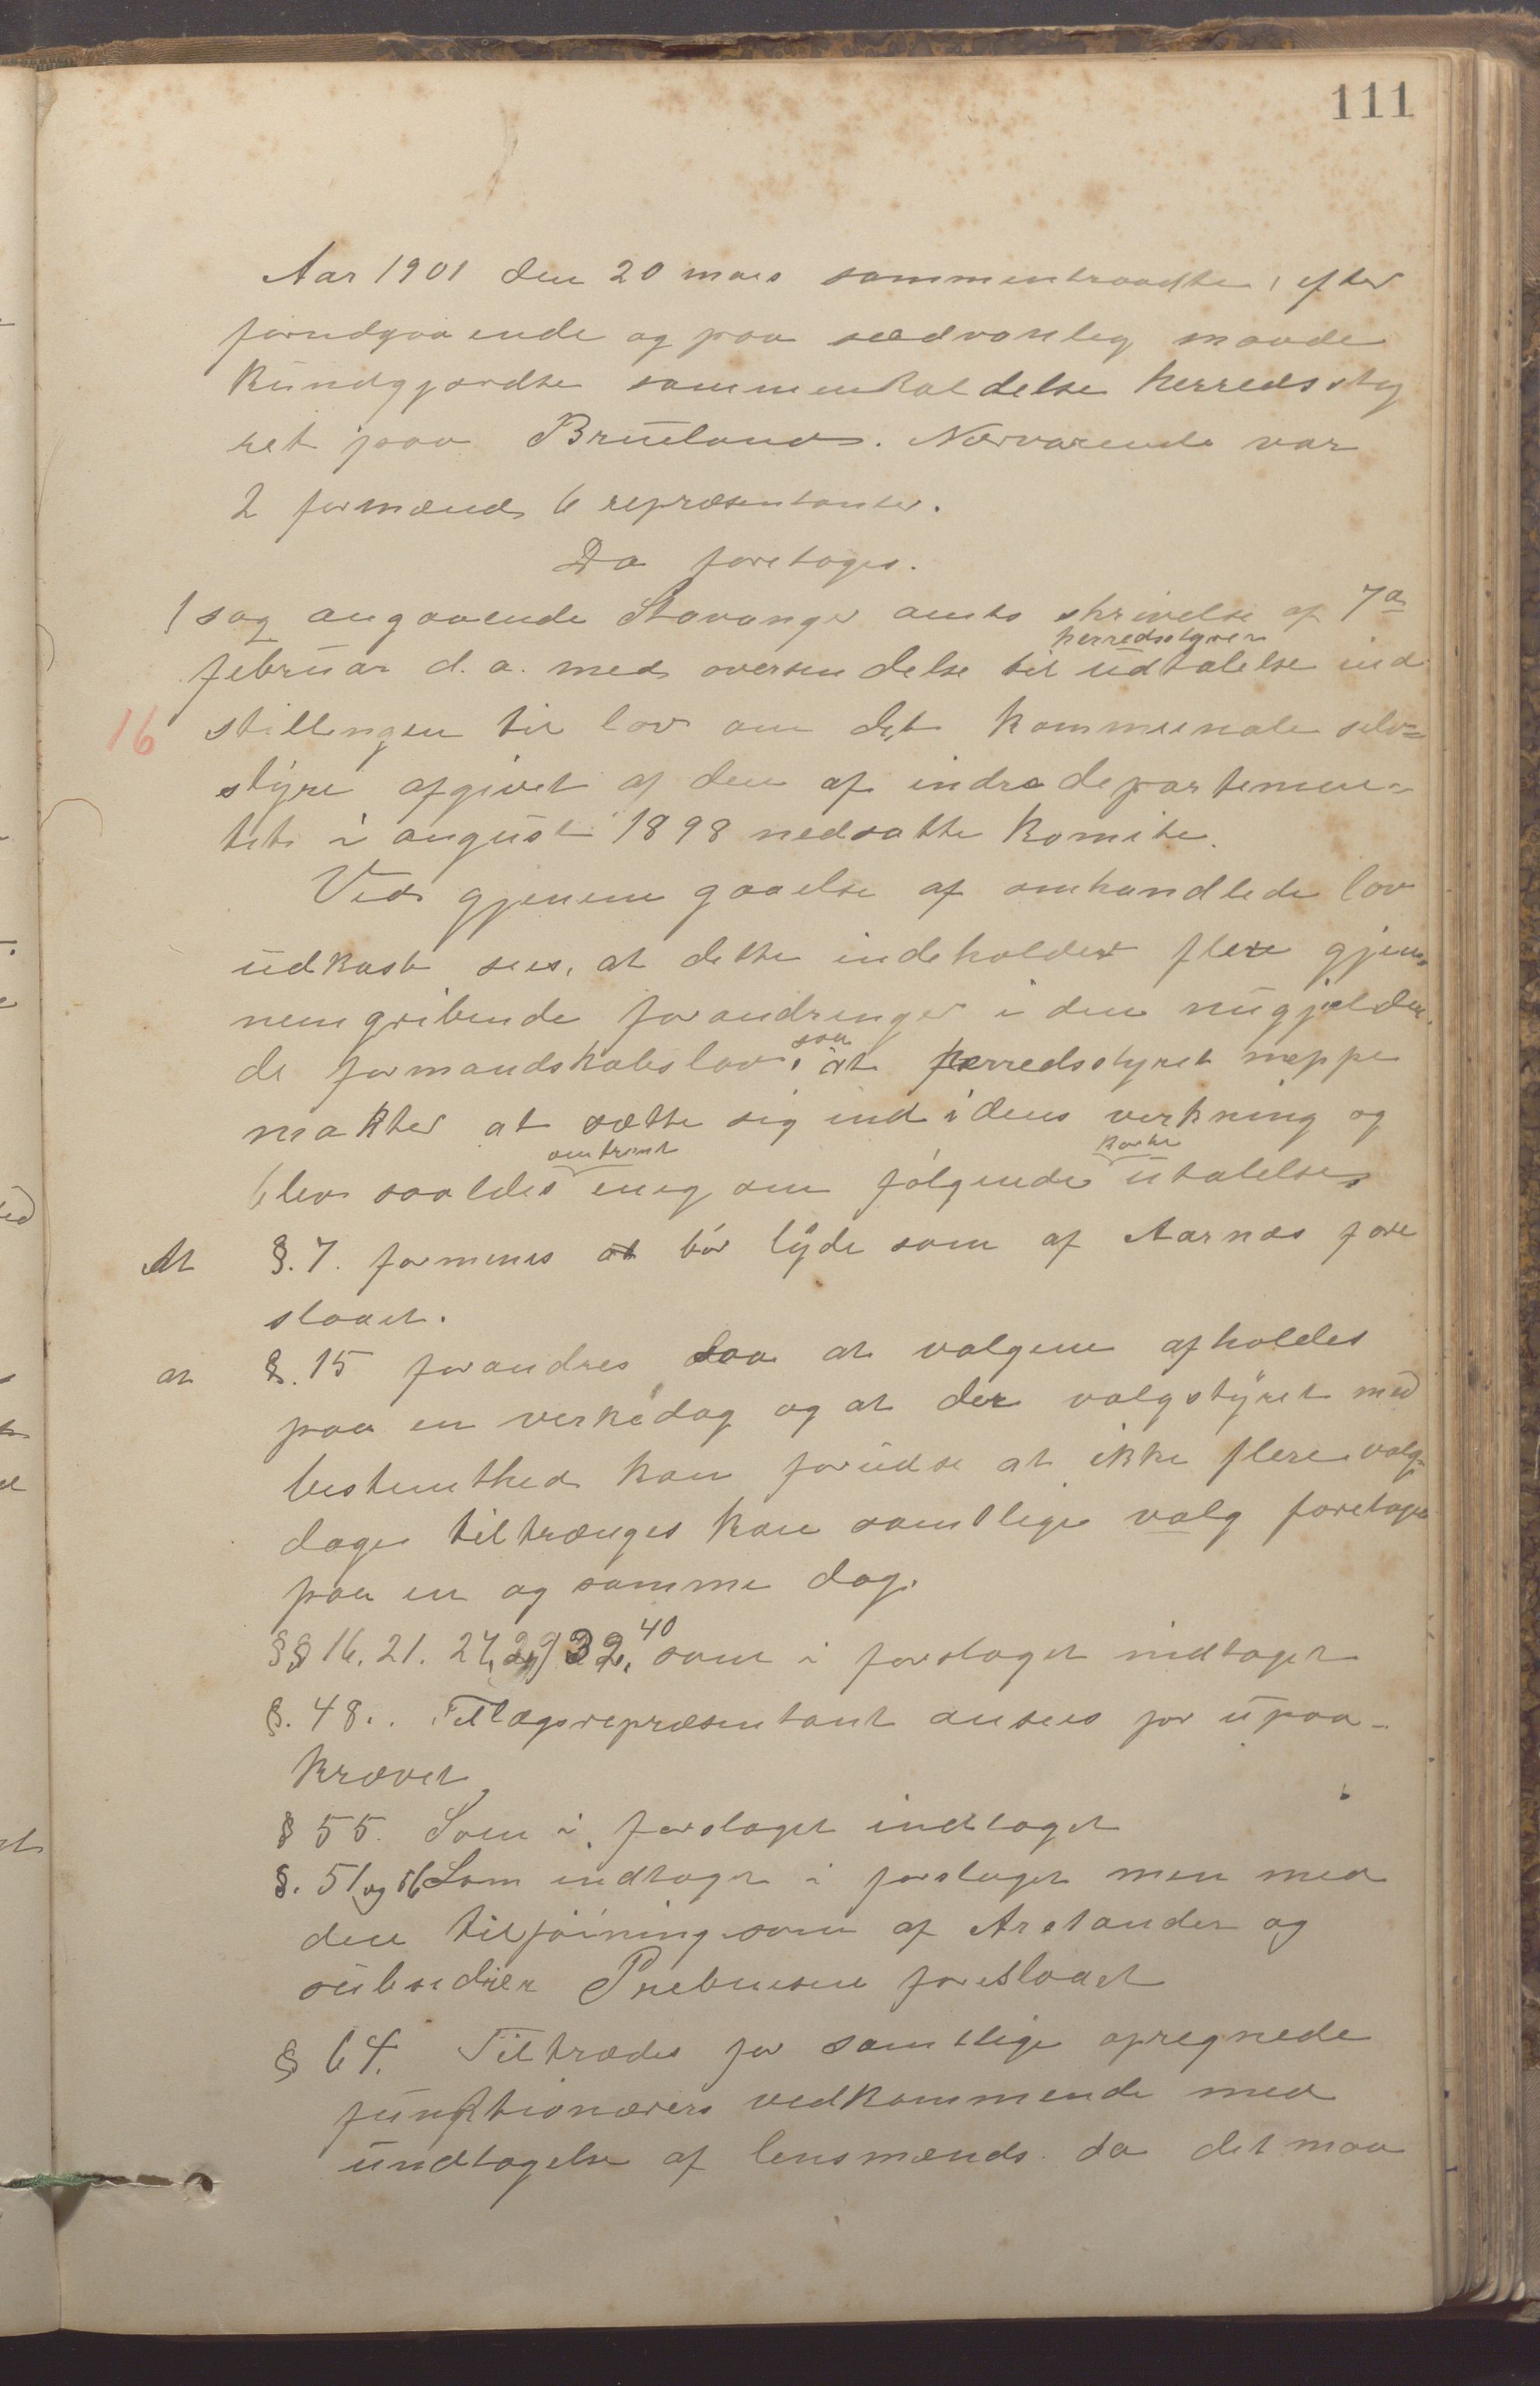 111
Aar 1901 den 20 mars sammentraadte, efter
forudgaaende og paa sædvanlig maade
kundgjordte sammenkaldelse herredssty
ret paa Brueland. Nærvarende var
2 formænd 6 repræsentanter.
Da foretoges.
1 sag angaaende Stavanger amts skrivelse af 7de
herredsstyrer
februar d. a. med oversendelse til udtalelse ind
16 stillingen til lov om det kommunale selv=
styre afgivet af den af indredepartemen=
tet i august 1898 nedsatte komite.
Ved gjenem gaaelse af omhandlede lov
udkast sees, at dette indeholder flere gjen=
nemgribende forandringer i den nugjælden
saa
de formandskabslov, at herredsstyret neppe
makter at sætte sig ind i dens verkning og
omtrent korte
blev saaldes enig om følgende utalelse,
At §. 7. formenes at bør lyde som af Aarnæs fore
slaaet.
at §. 15 forandres saa at valgene afholdes
paa en verkedag og at der valgstyret med
bestemthed kan forudse at ikke flere valg
dage tiltrænges kan samtlige valg foretages
paa en og samme dag.
40
§§ 16. 21. 27, 29 32, som i forslaget indtaget
§. 48.. Tillægsrepræsentant ansees for upaa-
krævet
§ 55. Som i forslaget indtaget
§. 51 og 56 Som indtaget i forslaget men med
den tilføining som af Arstander og
subsedier Prebensen foreslaaet
§ 64. Tiltrædes for samtlige opregnede
funktionærers vedkommende med
undtagelse af lensmænds da det maa